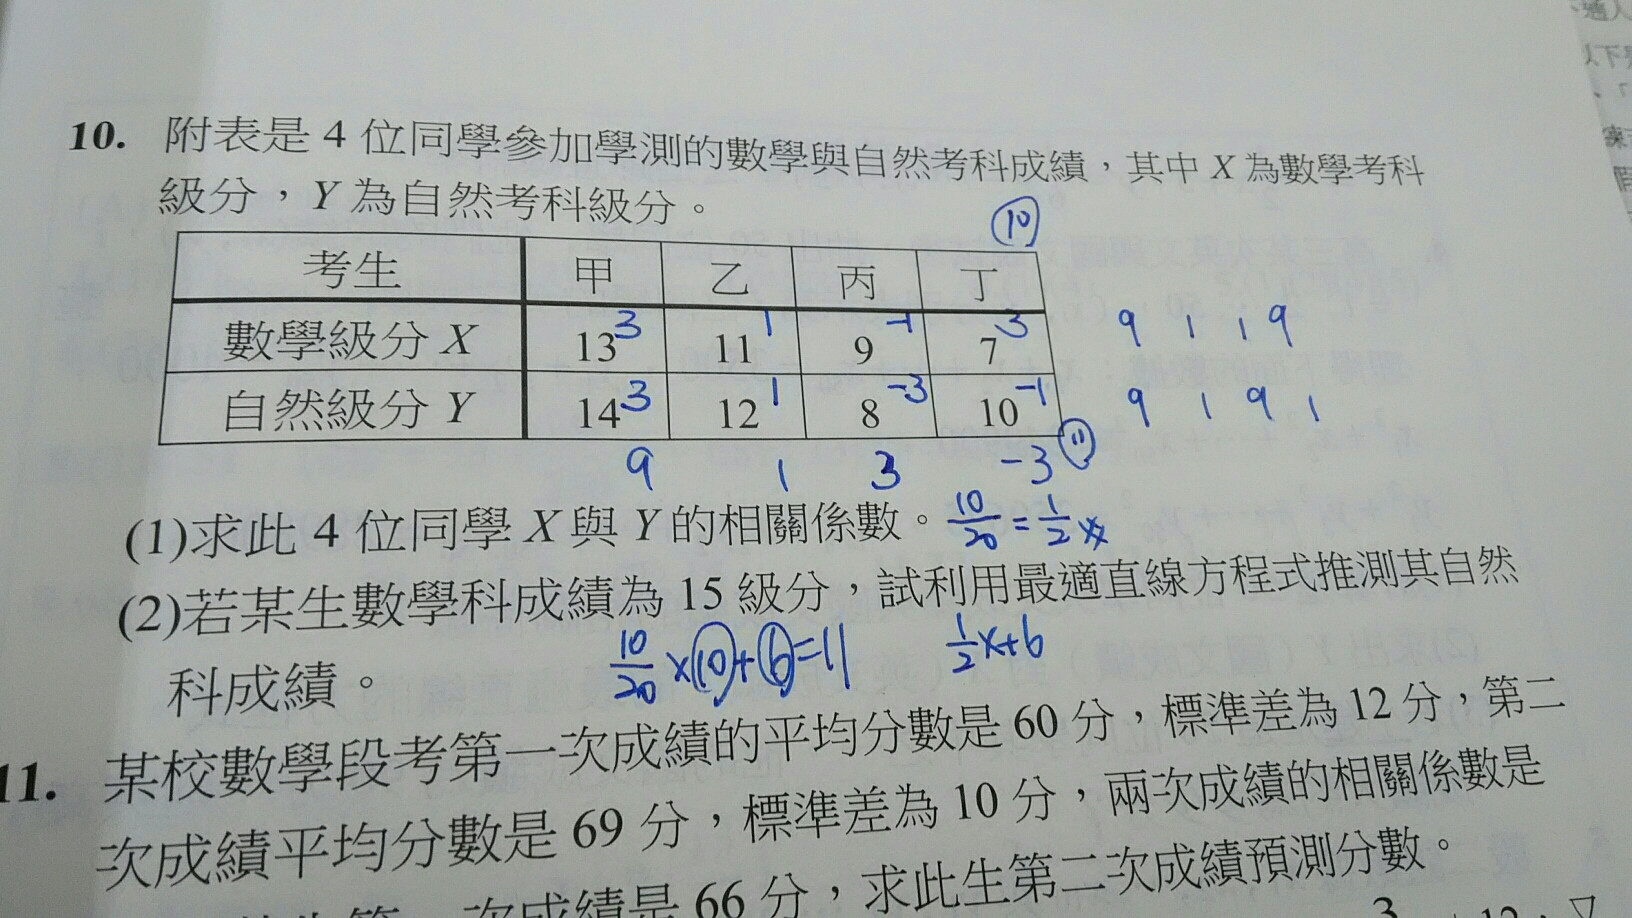 10. 附表是 4 位同學參加學測的數學與自然考科成績，其中 X 為數學考科
級分，Y 為自然考科級分。
⑩
考生 甲 乙 丙 丁
數學級分 X 13 3 11 1 9 -1 7 3 9 1 1 9
自然級分 Y 14 3 12 1 8 -3 10 -1 9 1 9 1
⑪
9 1 3 -3
(1)求此 4 位同學 X 與 Y 的相關係數。 10/20 = 1/2
(2)若某生數學科成績為 15 級分，試利用最適直線方程式推測其自然
科成績。 10/20 × 10 + 6 = 11 1/2 x+6
11. 某校數學段考第一次成績的平均分數是 60 分，標準差為 12 分，第二
次成績平均分數是 69 分，標準差為 10 分，兩次成績的相關係數是
次成績是 66 分，求此生第二次成績預測分數。